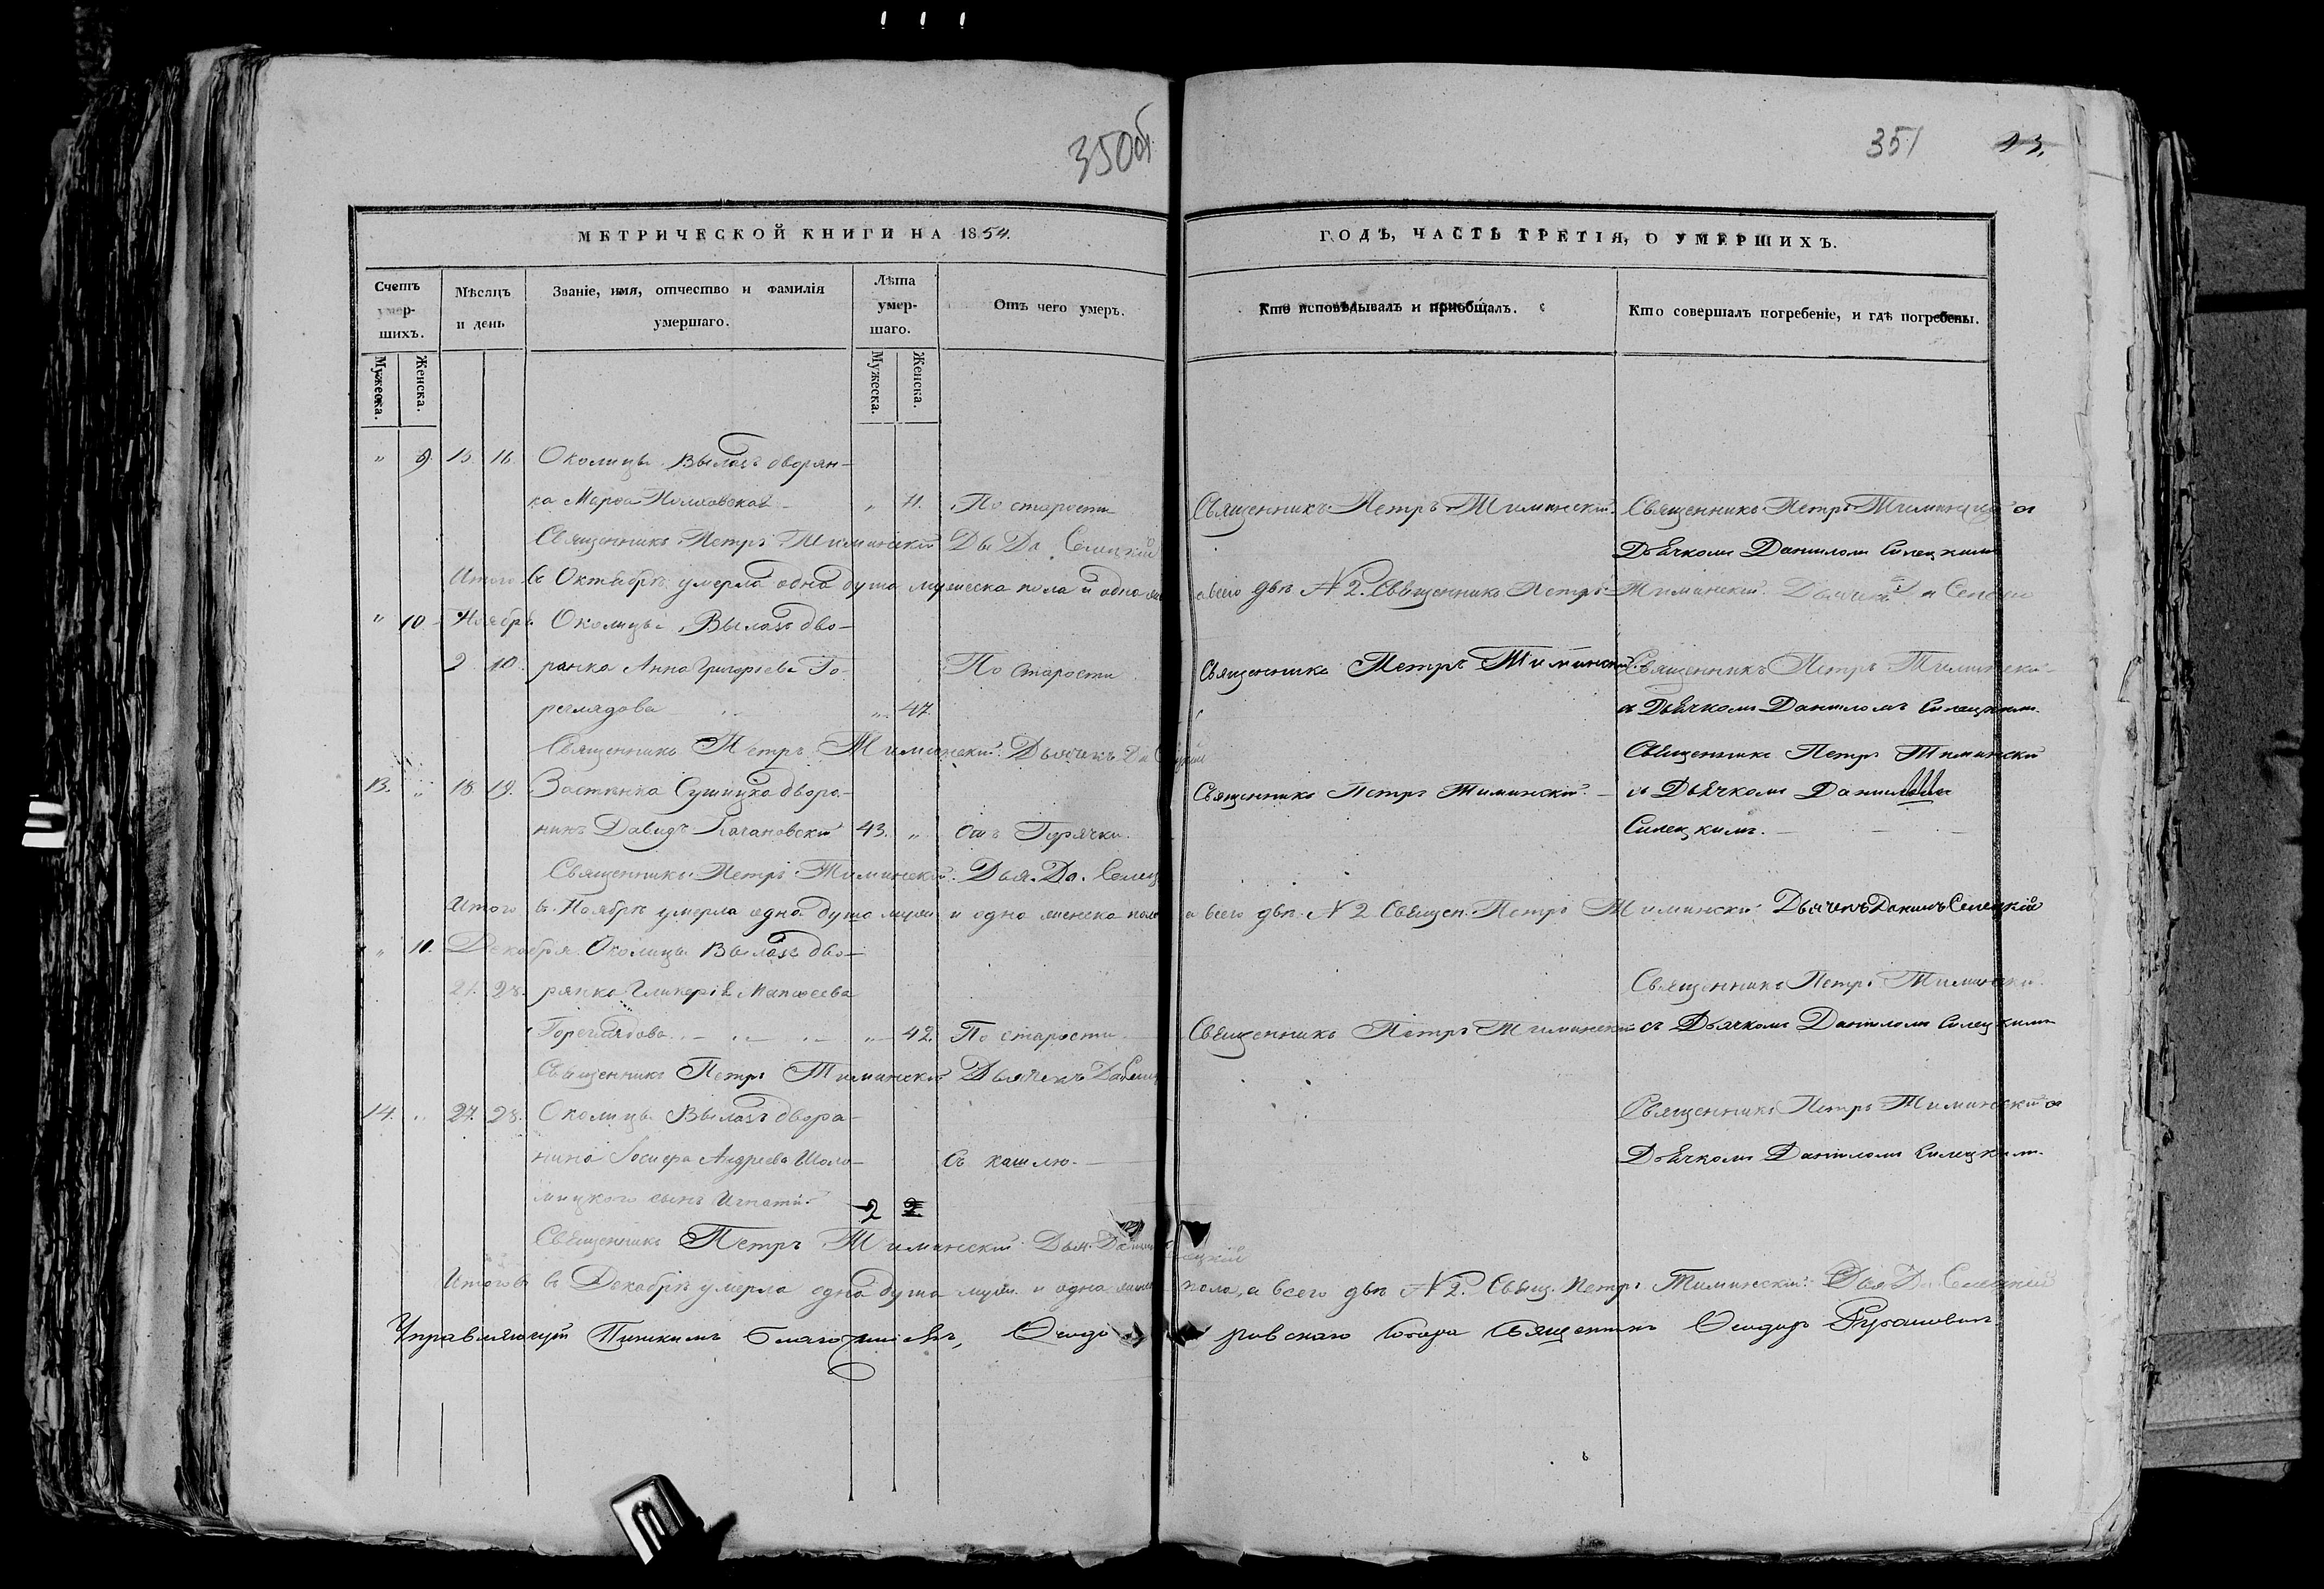 350об
351
13.
МЕТРИЧЕСКОЙ КНИГИ НА 1854.
ГОДЪ, ЧАСТЬ ТРЕТІЯ, О УМЕРШИХЪ.
Счетъ умер-шихъ.
Мѣсяцъ и день
Званіе, имя, отчество и фамилія умершаго.
Лѣта умер-шаго.
Отъ чего умеръ.
Кто исповѣдывалъ и приобщалъ.
Кто совершалъ погребеніе, и гдѣ погребены.
Мужеска.
Женска.
Мужеска.
Женска.
" 9. 15. 16. Околицы Вылазъ дворян-
ка Марѳа " 71. По старости Священникъ Петръ Тиминскій. Священникъ Петръ Тиминскій съ
Священникъ Петръ Тиминскій Дья Да Селецкій Дьячкомъ Даниломъ Силецкимъ
Итого въ Октябрѣ умерла одна душа мужеска пола и одна а всего двѣ N 2. Священникъ Петръ Тиминскій. Дьячекъ
" 10. Ноябрь Околицы Вылазъ дво-
2. 10. рянка Анна Григорьева Го- По Старости Священникъ Петръ Тиминскій. Священникъ Петръ Тиминскій
реглядова " 47. съ Дьячкомъ Даниломъ Силецкимъ.
Священникъ Петръ Тиминскій. Дьячекъ Да Священникъ Петръ Тиминскій
13. " 18. 19. Застѣнка Сушицка дворя- Священникъ Петръ Тиминскій. съ Дьячкомъ Даниломъ
нинъ Давидъ Качановскій 43. " Отъ Горячки. Силецкимъ.
Священникъ Петръ Тиминскій. Дья. Да. Селец
Итого въ Ноябрѣ умерла одна душа муж. и одна женска пола а всего двѣ. N 2 Священ. Петръ Тиминскій Дьячекъ Данилъ Селецкій
" 11. Декабря Околицы Вылазъ дво-
21. 23. рянка Гликерія Матѳеева Священникъ Петръ Тиминскій
Гореглядова " 42. По старости Священникъ Петръ Тиминскій съ Дьячкомъ Даниломъ Силецкимъ
Священникъ Петръ Тиминскій Дьячекъ Да Селец
14. " 27. 28. Околицы Вылазъ дворя- Священникъ Петръ Тиминскій съ
нина Іосифа Андреева Шоло- Съ кашлю. Дьячкомъ Даниломъ Силецкимъ.
мицкого сынъ Игнатій 2
Священникъ Петръ Тиминскій Дья. Данил ецкій
Итого въ Декабрѣ умерла одна душа муж. и одна женск пола, а всего двѣ N 2. Свящ. Петръ Тиминскій. Дья Да Селецкій
Управляющій Пинскимъ благочиніемъ, Ѳеодо ровскаго Собора Священникъ Ѳеодоръ